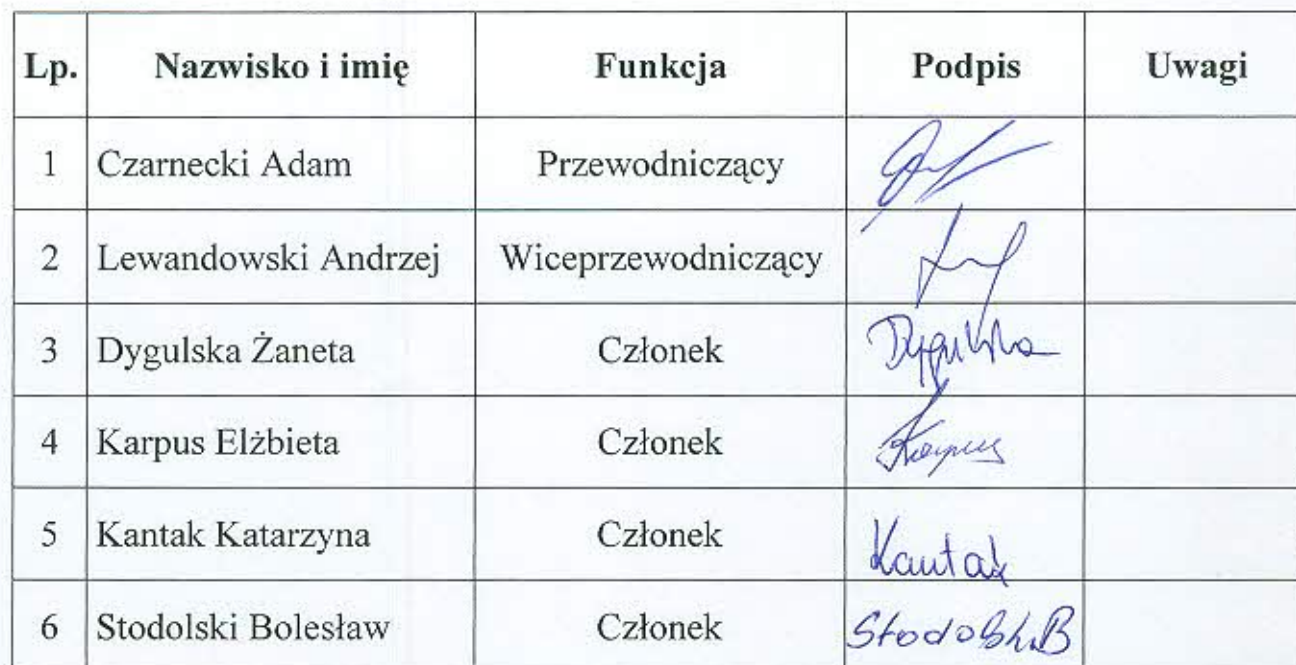 Lp. Nazwisko i imię Funkcja Podpis Uwagi
1 Czarnecki Adam Przewodniczący
2 Lewandowski Andrzej Wiceprzewodniczący
3 Dygulska Żaneta Członek Dygulska
4 Karpus Elżbieta Członek Karpus
5 Kantak Katarzyna Członek Kantak
6 Stodolski Bolesław Członek